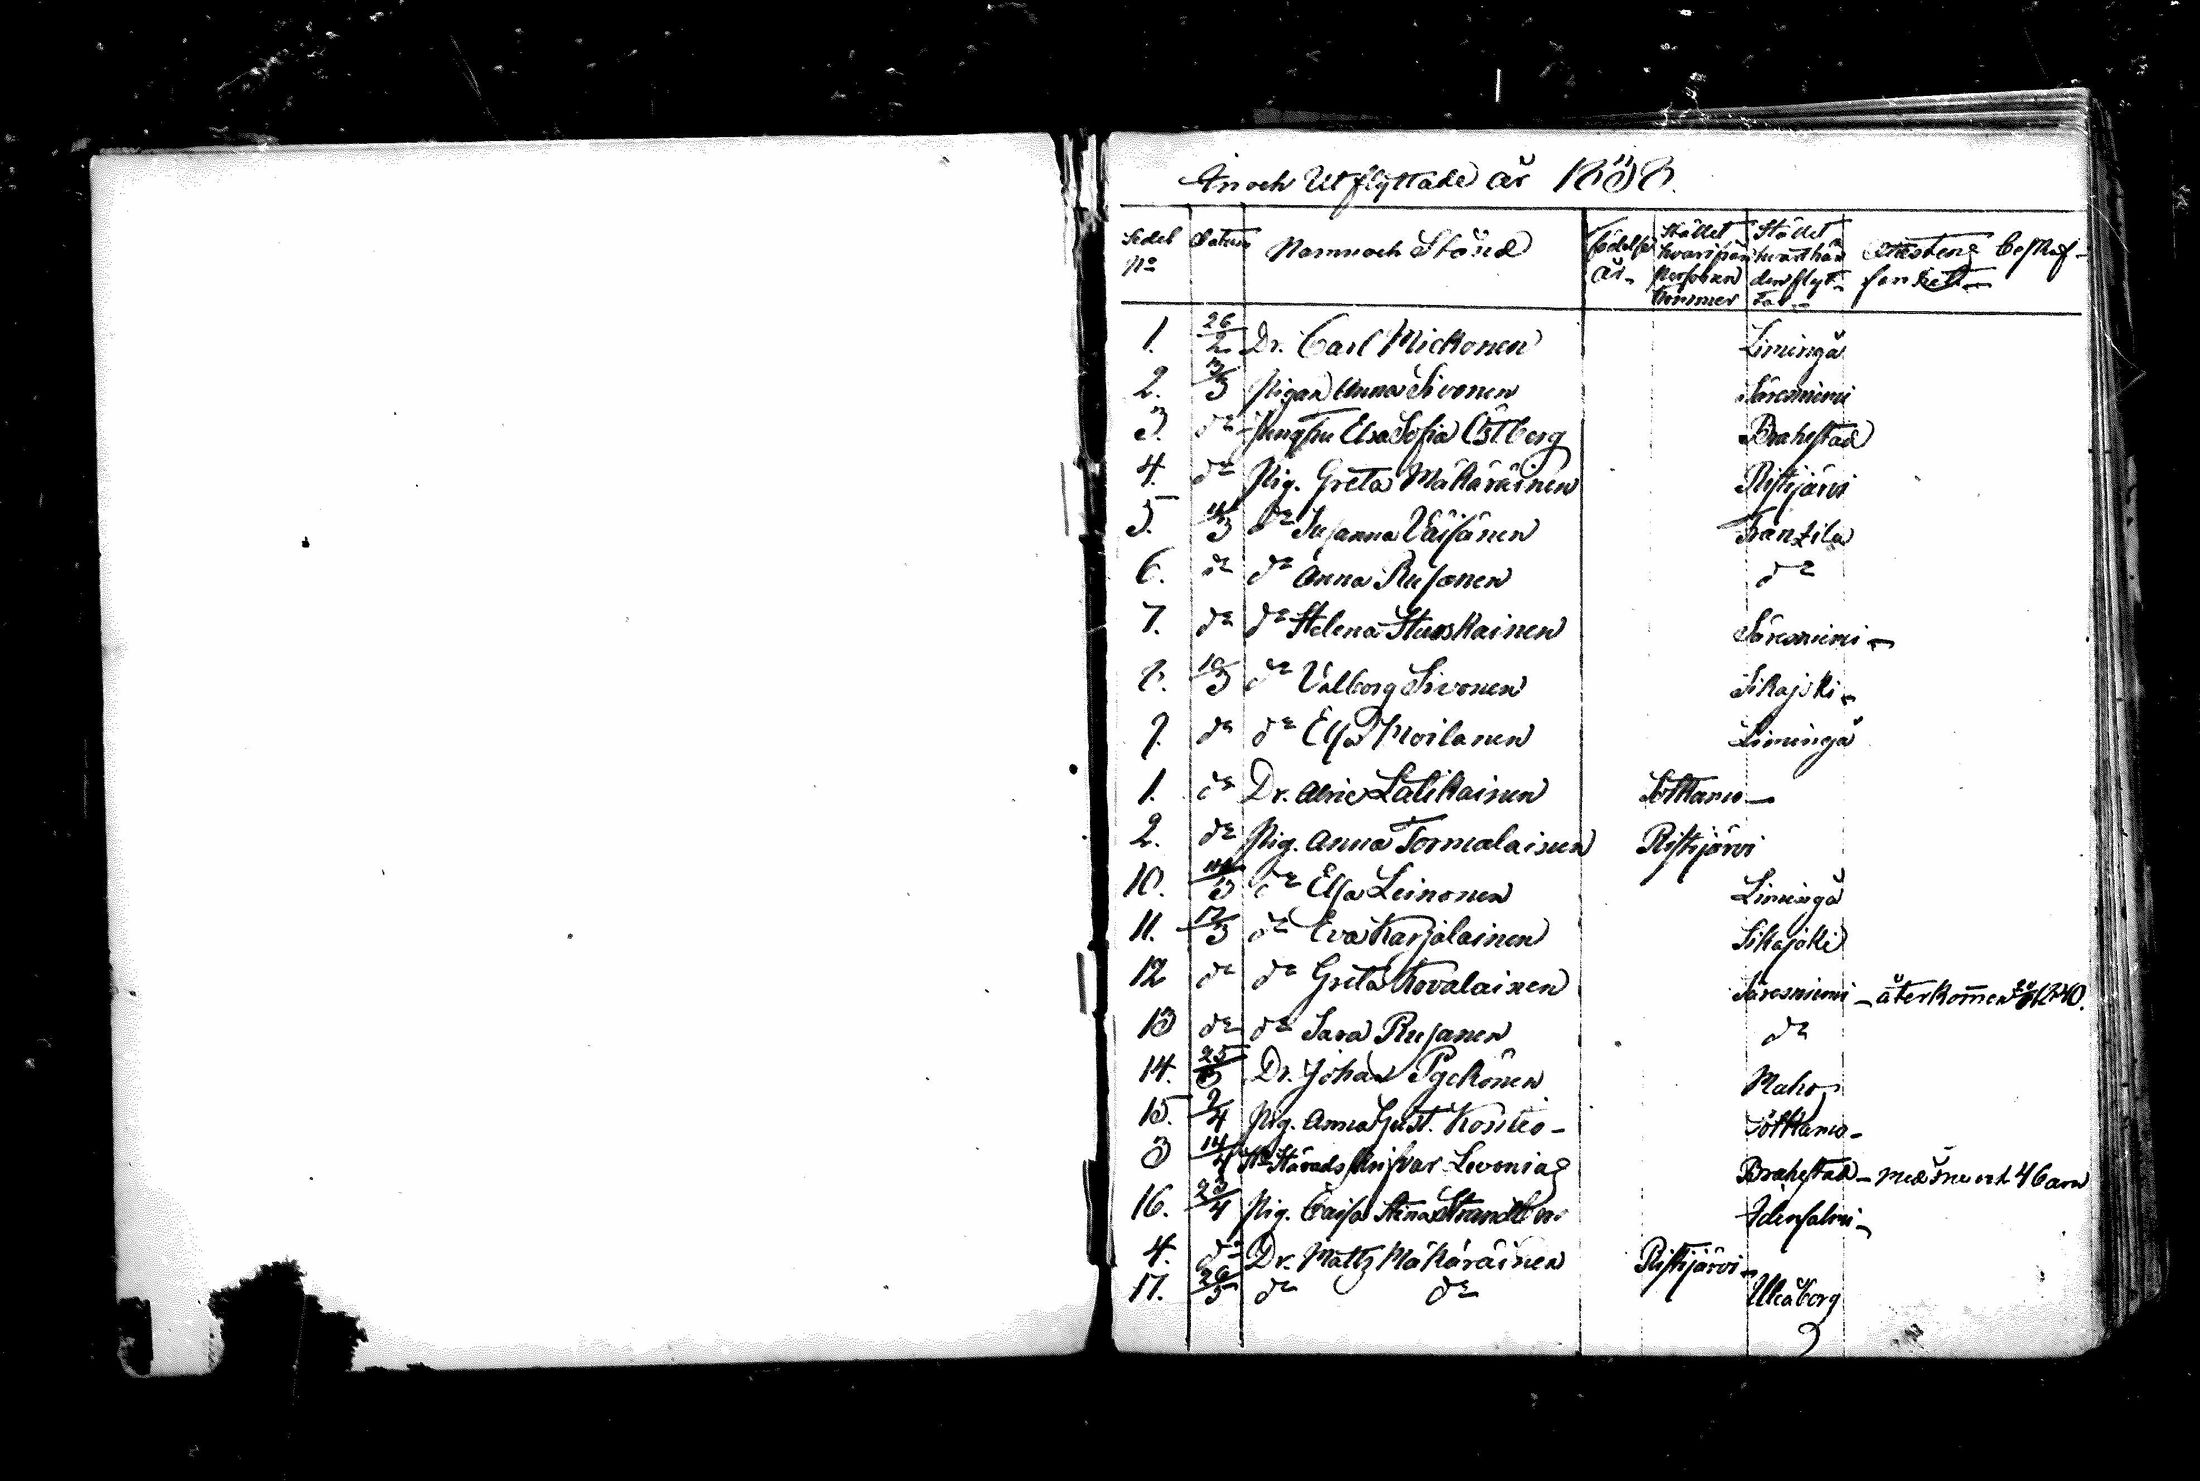 In och Utflyttade år 1838.
Sedel No Datum Namn och Stånd födelse år Stället hvarifrån personen kommer Stället hvarthän den flyttar Attestens beskaffenhet
1. 26/2 Dr. Carl Mickonen Limingå
2. 3/3 Pigan Anna Sivonen Säresniemi
3. do Jungfru Elsa Sofia Östberg Brahestad
4. do Pig. Greta Mäkäräinen Ristijärvi
5. 4/3 do Susanna Väisänen Frantzila
6. do do Anna Rusanen do
7. do do Helena Huuskainen Säresniemi
8. 10/3 do Valborg Sivonen Sikajoki
9. do do Elsa Moilanen Limingå
1. do Dr. Alric Latikainen Sotkamo
2. do Pig. Anna Tormalainen Ristijärvi
10. 11/3 do Elsa Leinonen Limingå
11. 17/3 do Eva Karjalainen Sikajoki
12 do do Greta Kovalainen Säresniemi återkommen 1840.
13 do do Sara Rusanen do
14. 25/3 Dr. Johan Pyckönen Maho
15. 2/4 Pig. Anna Gust. Kontio Sotkamo
3 14/4 Hr Häradsskrifvar Levonius Brahestad med fru och 4 barn
16. 23/4 Pig. Caisa Stina Strandberg Idensalmi
4. do Dr. Matts Mäkäräinen Ristijärvi
17. 26/5 do do Uleåborg